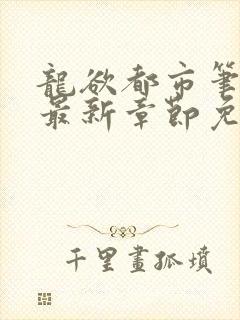 龍欲都市筆
最新章節免
千里畫孤墳